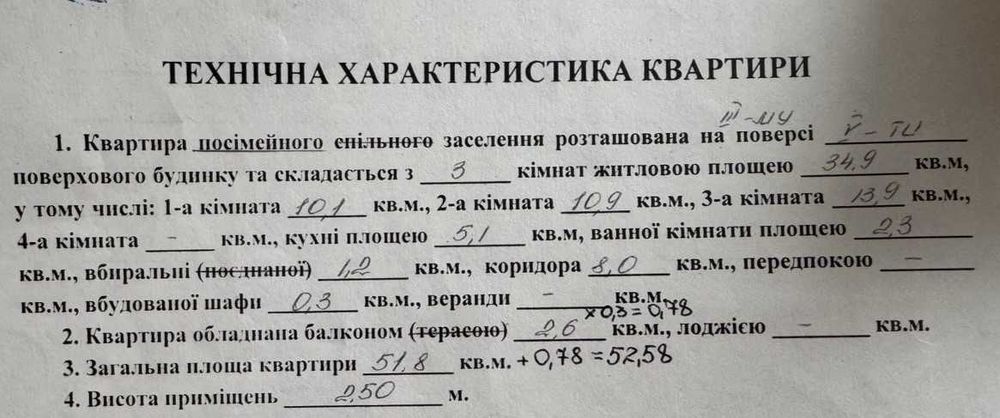 ТЕХНІЧНА ХАРАКТЕРИСТИКА КВАРТИРИ
III-му
1. Квартира посімейного спільного заселення розташована на поверсі V-ти
поверхового будинку та складається з 3 кімнат житловою площею 34,9 кв.м,
у тому числі: 1-а кімната 10,1 кв.м., 2-а кімната 10,9 кв.м., 3-а кімната 13,9 кв.м.,
4-а кімната - кв.м., кухні площею 5,1 кв.м, ванної кімнати площею 2,3
кв.м., вбиральні (поєднаної) 1,2 кв.м., коридора 8,0 кв.м., передпокою —
кв.м., вбудованої шафи 0,3 кв.м., веранди - кв.м.
×0,3=0,78
2. Квартира обладнана балконом (терасою) 2,6 кв.м., лоджією - кв.м.
3. Загальна площа квартири 51,8 кв.м. +0,78 =52,58
4. Висота приміщень 2,50 м.